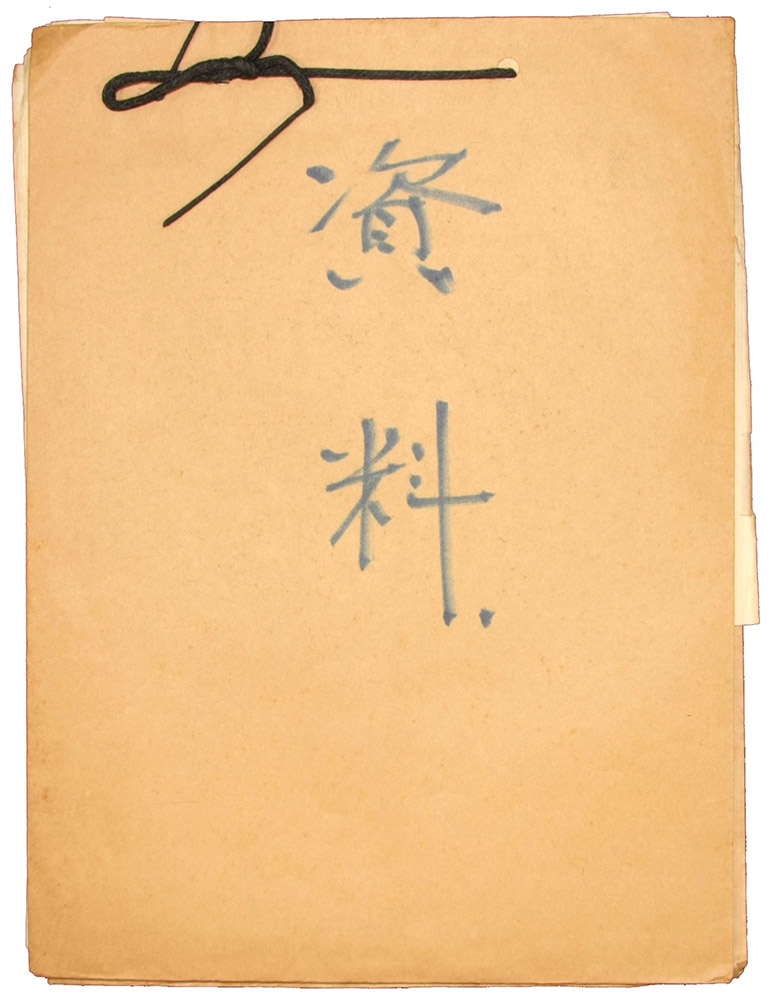 資料.